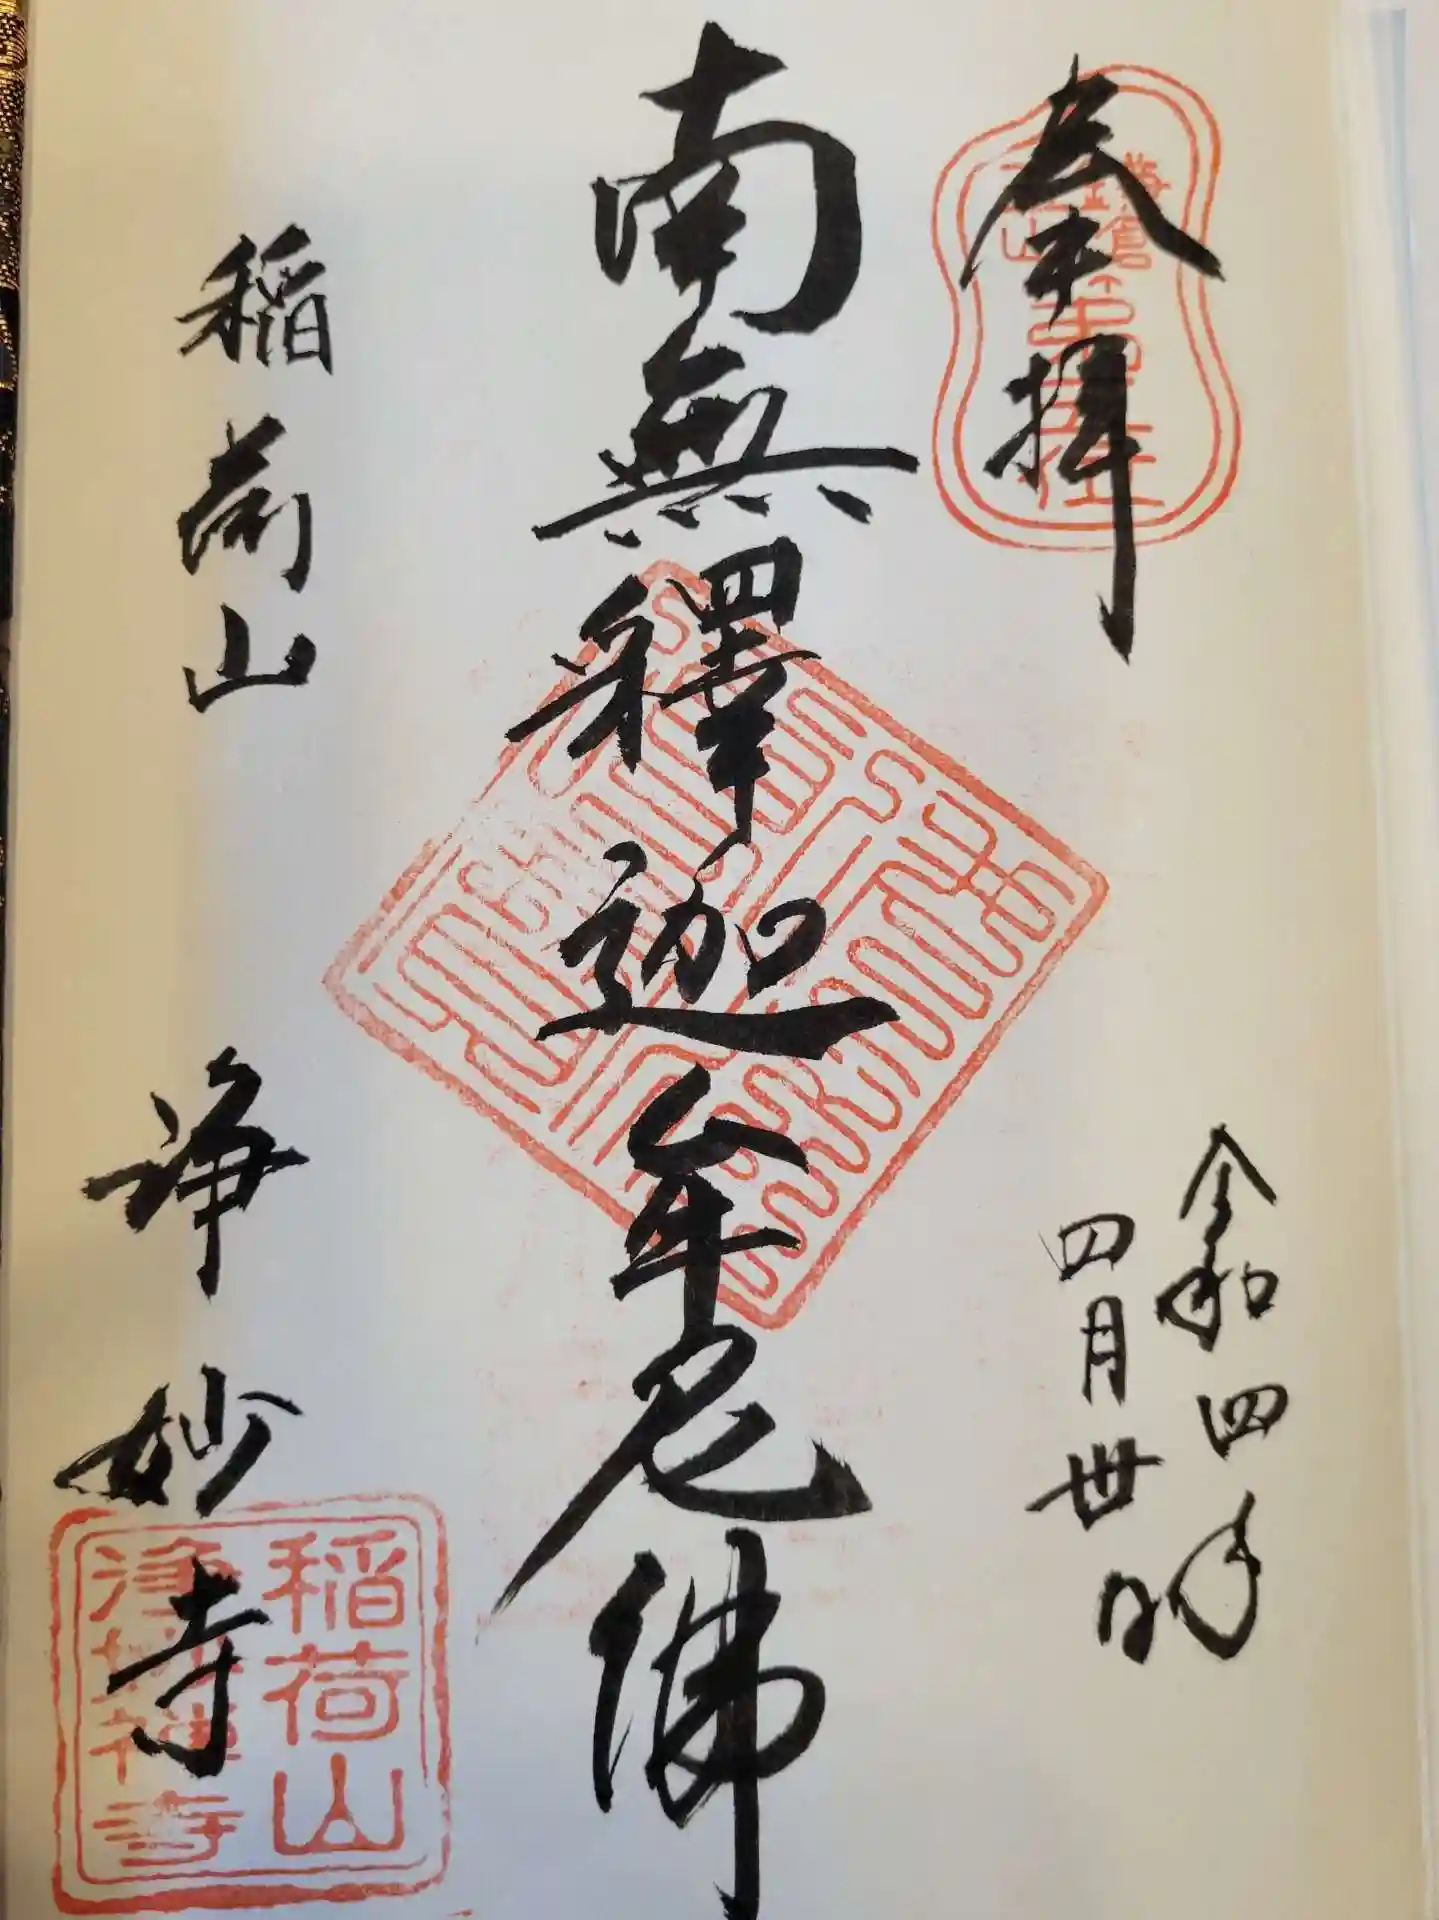 奉拝
令和四年
四月卅日
南無釋迦牟尼佛
稲荷山
浄妙寺
稲荷山
浄妙禅寺